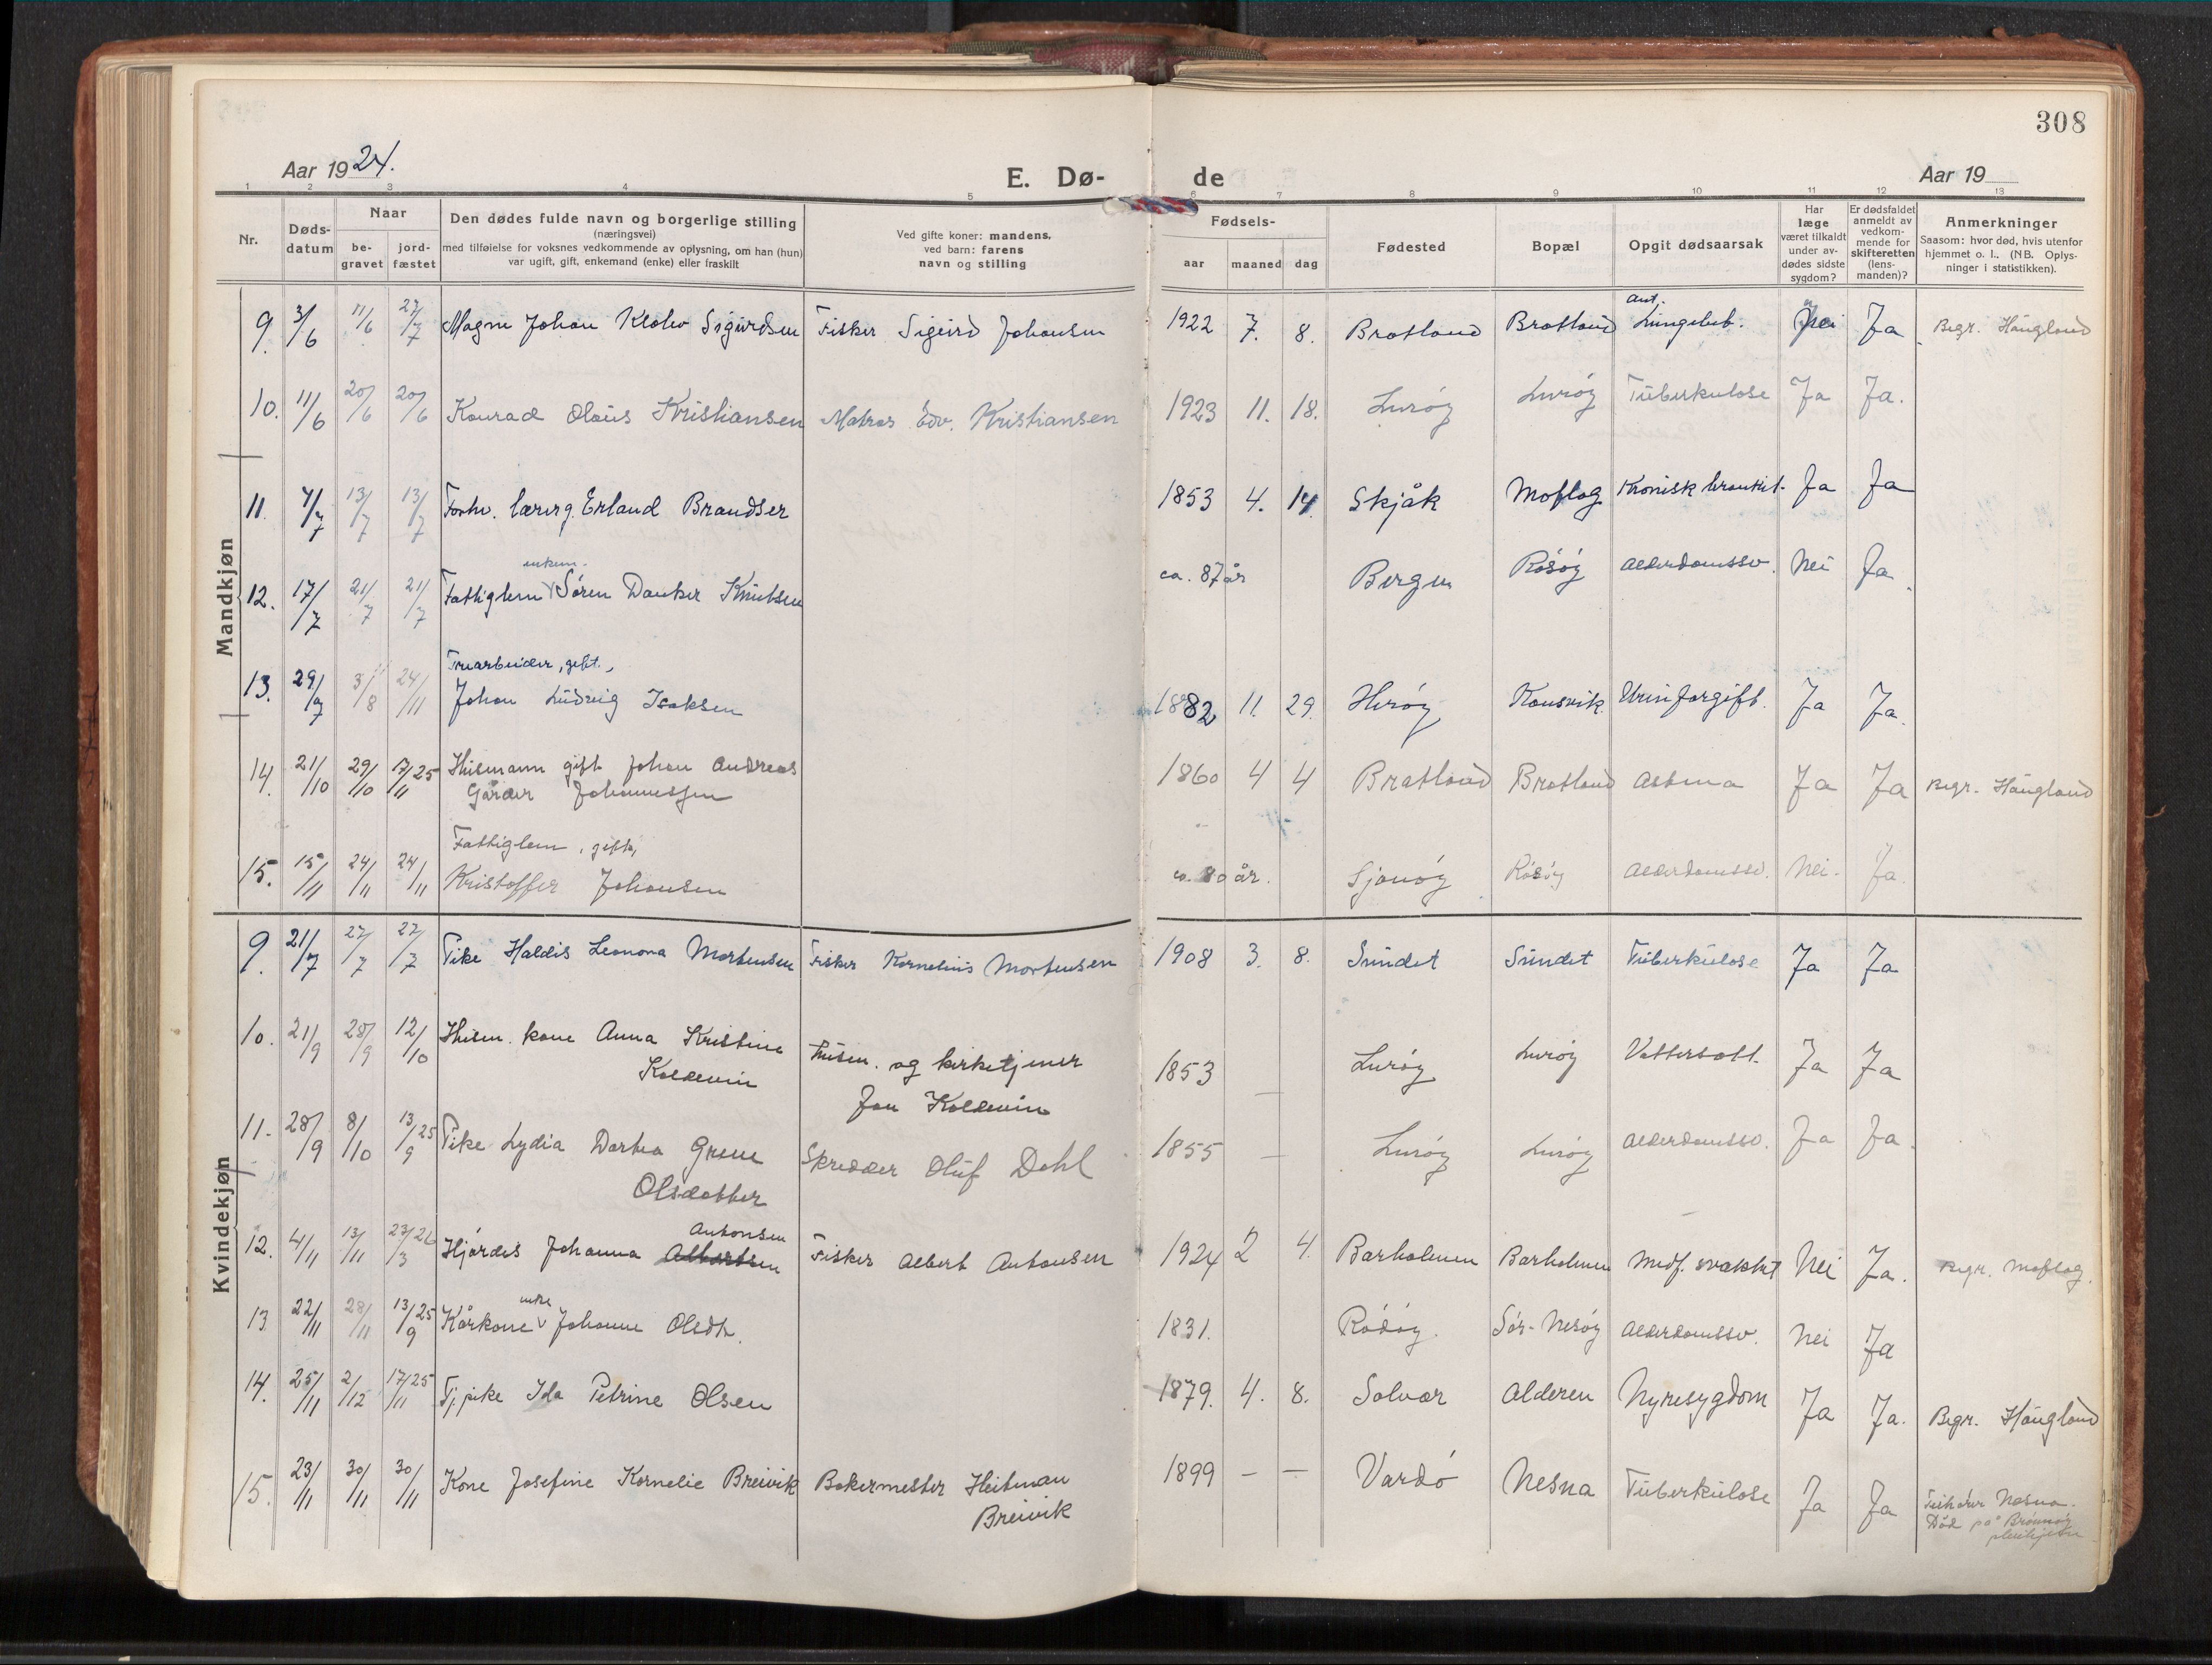 308
Aar 1924.
E. Dø-
de
Aar 19
1 2 3 4 5 6 7 8 9 10 11 12 13
Nr.
Døds-
datum
Naar
be-
gravet
jord-
fæstet
Den dødes fulde navn og borgerlige stilling
(næringsvei)
med tilføielse for voksnes vedkommende av oplysning, om han (hun)
var ugift, gift, enkemand (enke) eller fraskilt
Ved gifte koner: mandens,
ved barn: farens
navn og stilling
Fødsels-
aar maaned dag
Fødested
Bopæl
Opgit dødsaarsak
Har
læge
været tilkaldt
under av-
dødes sidste
sygdom?
Er dødsfaldet
anmeldt av
vedkom-
mende for
skifteretten
(lens-
manden)?
Anmerkninger
Saasom: hvor død, hvis utenfor
hjemmet o. l.. (NB. Oplys-
ninger i statistikken).
Mandkjøn
9. 3/6 11/6 27/7 Magne Johan Sigurdsen Fisker Sigurd Johansen 1922 7. 8. Bratland Bratland Ant. Lungebet. Nei Ja Begr. Haugland
10. 11/6 20/6 20/6 Konrad Olaus Kristiansen Matros Edv. Kristiansen 1923 11. 18. Lurøy Lurøy Tuberkulose Ja Ja.
11. 4/7 13/7 13/7 Forhv. Erland Brandser 1853 4. 14. Skjåk Moflag Kronisk bronkit. Ja Ja
enkem.
12. 17/7 21/7 21/7 Fattiglem Søren Danker Knutsen ca. 87 år Bergen Rösöy Alderdomssv. Nei Ja.
gift.,
13. 29/7 3/8 24/11 Johan Ludvig Isaksen 1882 11. 29. Herøy Konsvik. Urinforgift. Ja Ja.
14. 21/10 29/10 17/11 25 Husmann gift Johan Andreas
Gårder Johannessen 1860 4 4 Bratland Bratland Astma Ja Ja Begr. Haugland
Fattiglem, gift,
15. 15/11 24/11 24/11 Kristoffer Johansen ca. 80 år. Sjonøy Rösöy Alderdomssv. Nei. Ja.
Kvindekjøn
9. 21/7 27/7 27/7 Pike Haldis Leonora Mortensen Fisker Kornelius Mortensen 1908 3. 8. Sundet Sundet Tuberkulose Ja Ja
10. 21/9 28/9 12/10 Husm. kone Anna Kristine
Koldevin Husm. og kirketjener
Jan Koldevin 1853 — Lurøy Lurøy Vattersott. Ja Ja
11. 28/9 8/10 13/9 25 Pike Lydia Dortea Grene
Olsdatter Skredder Oluf Dahl 1855 — Lurøy Lurøy Alderdomssv. Ja Ja.
Antonsen
12. 4/11 13/11 23/3 26 Hjördis Johanna Albertsen Fisker Albert Antonsen 1924 2 4. Barholmen Barholmen Medf. svakhet Nei Ja. Begr. Moflag.
enke
13 22/11 28/11 13/9 25 Kårkone Johanne Olsdtr. 1831. Rödöy. Sör-Nesöy Alderdomssv. Nei Ja
14. 25/11 2/12 17/11 25 Tj.pike Ida Petrine Olsen 1879. 4. 8. Solvær Alderen Nyresygdom Ja Ja. Begr. Haugland
15. 23/11 30/11 30/11 Kone Josefine Kornelie Breivik Bakermester Heitman
Breivik 1899 — — Vardö Nesna Tuberkulose Ja Ja Tilhører Nesna.
Död på Brønnøy
pleiehjem